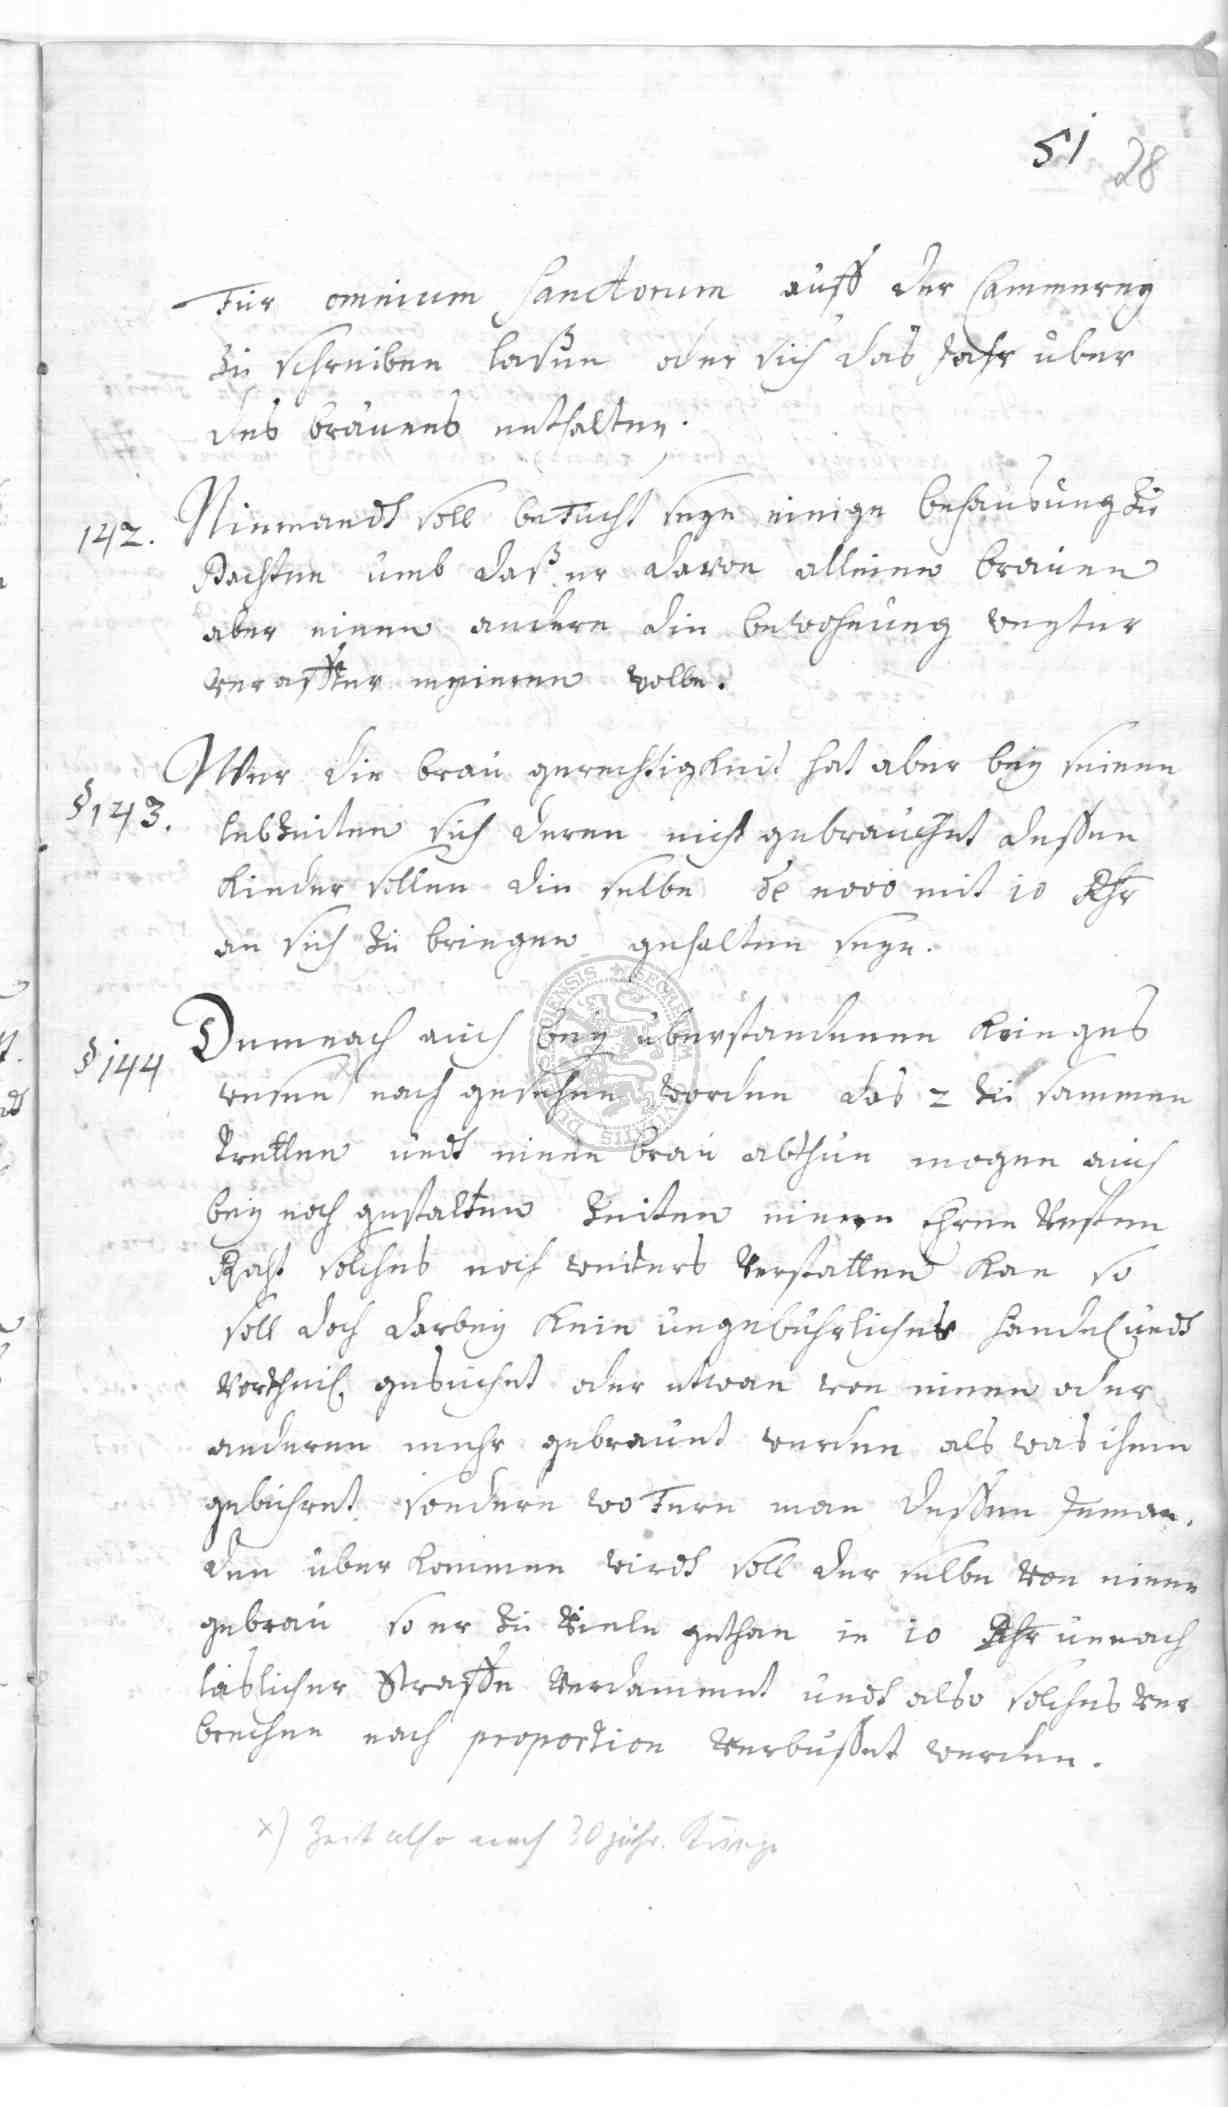 51 28
für omnium sanctorum auff der Cammerey
zu schreiben laßen oder sich das Jahr über
des brauens enthalten.
142. Niemandt soll befucht seyn einige behausung zu
Pachten umb daß er davon alleine brauen
aber einen andern die bewohnung
vermeinen wolle.
§143. Wer die brau gerechtigkeit hat aber bey seinen
lebzeiten sich deren nicht gebrauchet dessen
Kinder sollen die selbe de novo mit 10 Rthr
an sich zu bringen gehalten seyn.
§144 Demnach auch bey überstandenen Krieges
wesen x) nach gesehen worden das 2 zu sammen
tretten undt einen brau abthun mogen auch
bey noch gestalten Zeiten einem Ehren Vesten
Raht solches noch weiters verstatten kan so
soll doch darbey kein ungebührliches handel undt
Vortheil gesuchet oder etwan von einen oder
anderen mehr gebrauet werden als was ihme
gebühret sondern wo fern man dessen Jeman-
den über kommen wirdt soll der selbe von einen
gebrau so er zu viele gethan in 10 Rthr unnach
läslicher Straffe verdammet undt also solches ver
brechen nach proportion verbüsset werden.
x) Zeit also nach 30jähr. Kriege
DIBLIOTHECA SECRETA